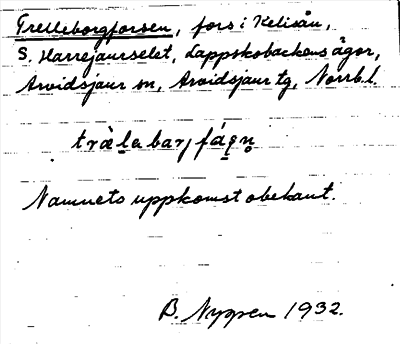 Trelleborgforsen, fors i Kelisån,
S. Harrejaurselet, Lappskobackens ägor,
Arvidsjaur sn, Arvidsjaur tg, Norrb. l.
Namnets uppkomst obekant.
B. Nygren 1932.